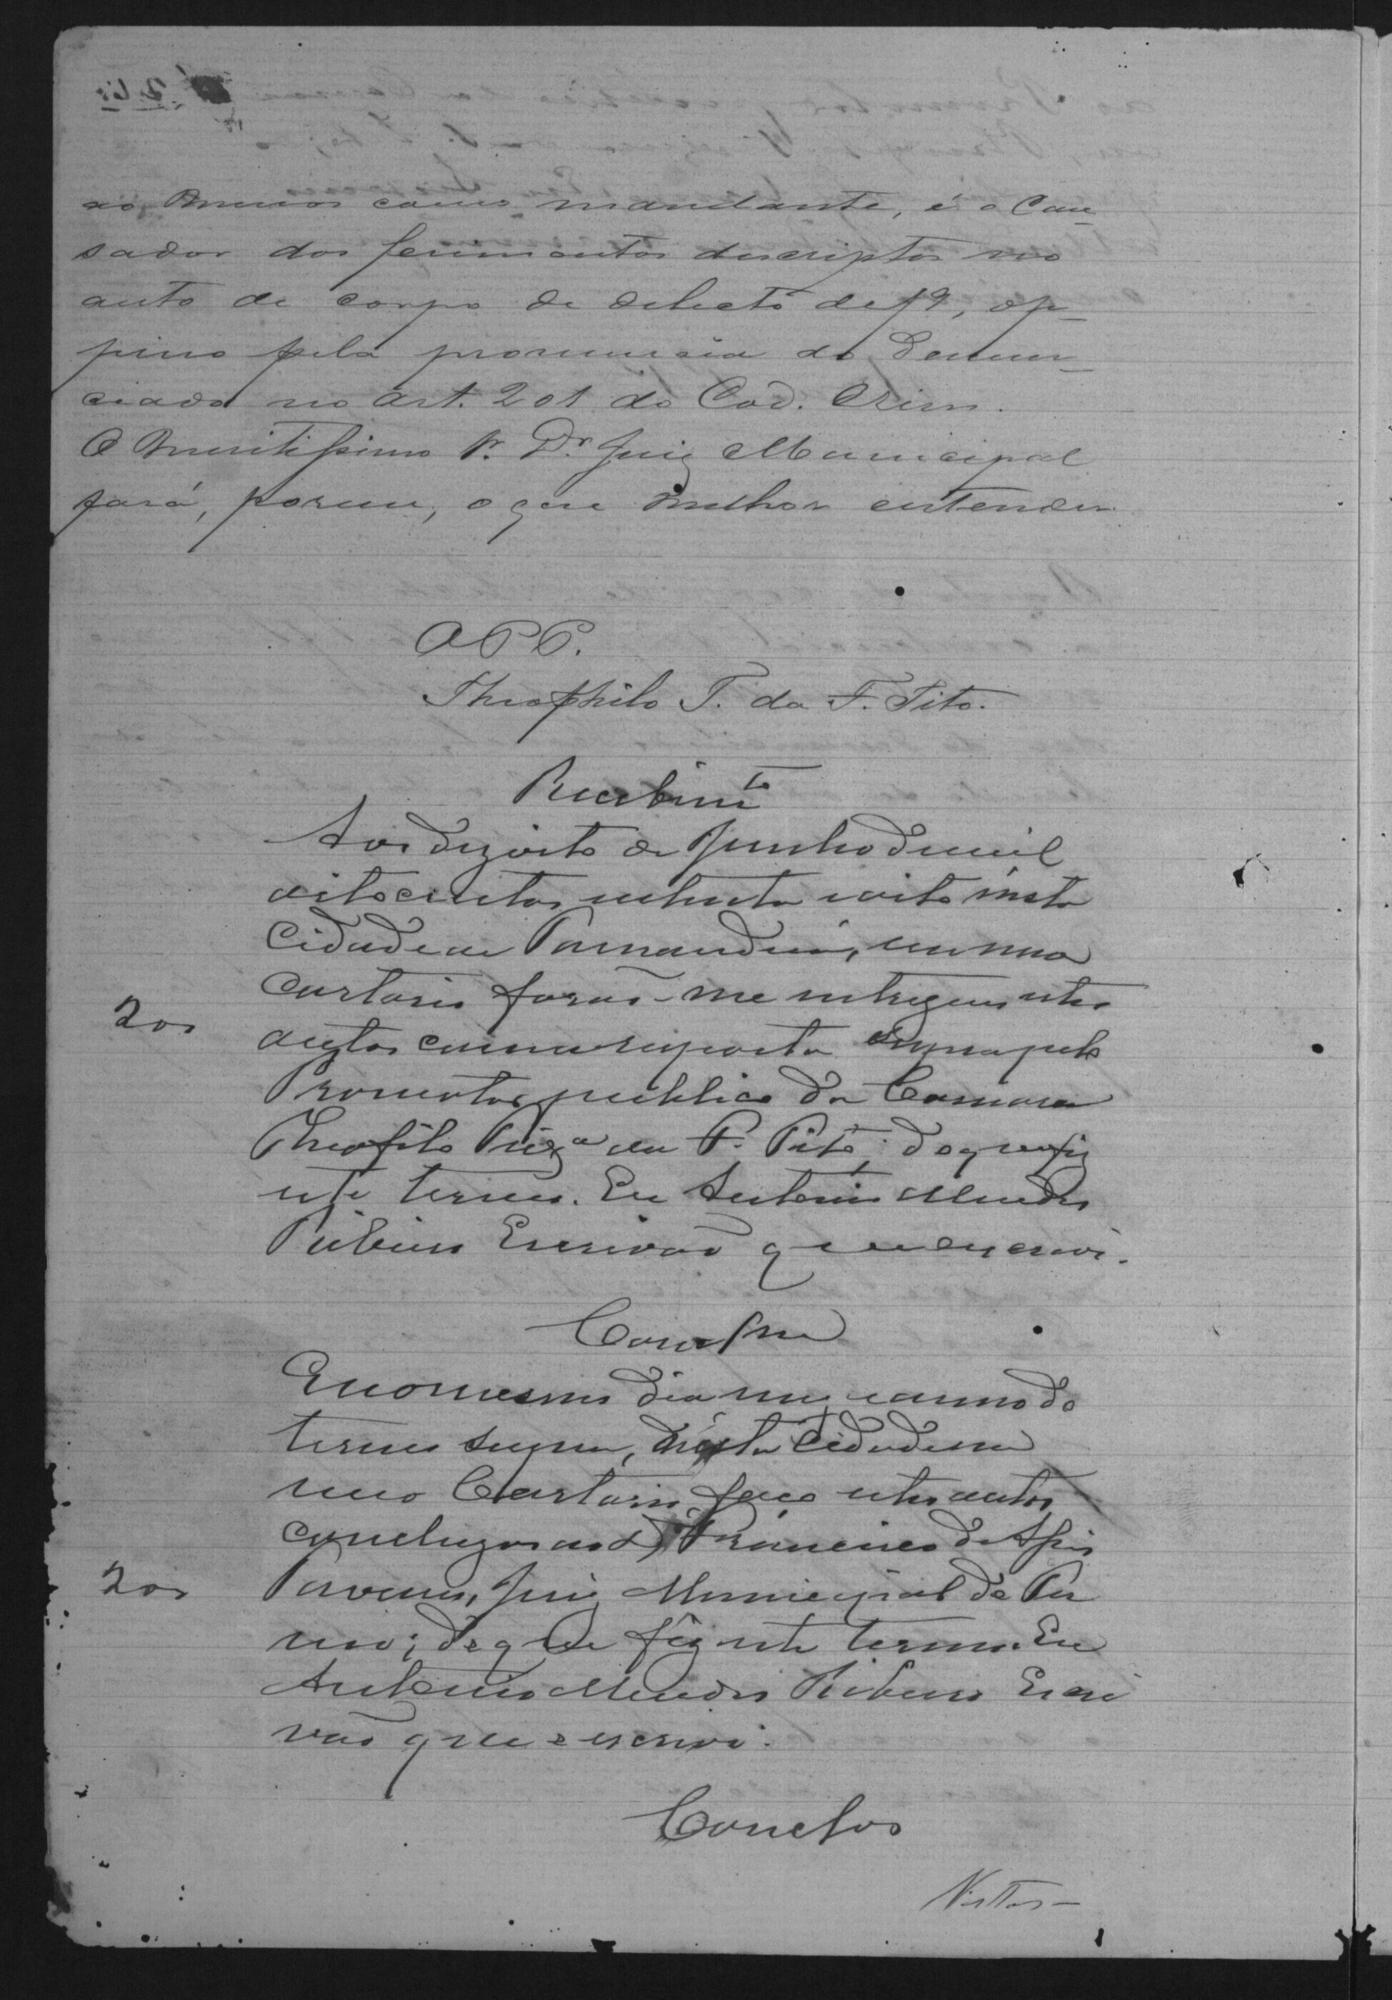 ao menos como mandante, é o cau-
sador dos ferimentos descriptos no
auto de corpo de delicto de f 9, op-
pino pela pronuncia do denun-
ciado no art. 201 do Cod. Crim.
O Meritissimo Sr. Dr. Juiz Municipal
fará, porem, o que melhor entender.
O P P.
Theophilo T. da F. Tito.
Recebimto
Aos dezoito de Junho de mil
oitocentos oitenta e oito nesta
Cidade de em meu
Cartorio forão-me entregues estes
autos com a resposta supra pelo
200
Promotor publico da Comarca
Theofilo da F. Tito; do que fiz
este termo. Eu Antonio Mendes
Ribeiro Escrivão que escrevi.
Conclsm
E no mesmo dia mez e anno do
termo supra, nesta Cidade em
meu Cartorio faço estes autos
concluzos ao Dr Francisco de Assis
200
Juiz Municipal do Ter
mo; do que fiz este termo. Eu
Antonio Mendes Ribeiro Escri
vão que o escrevi.
Conclos
Vistos-